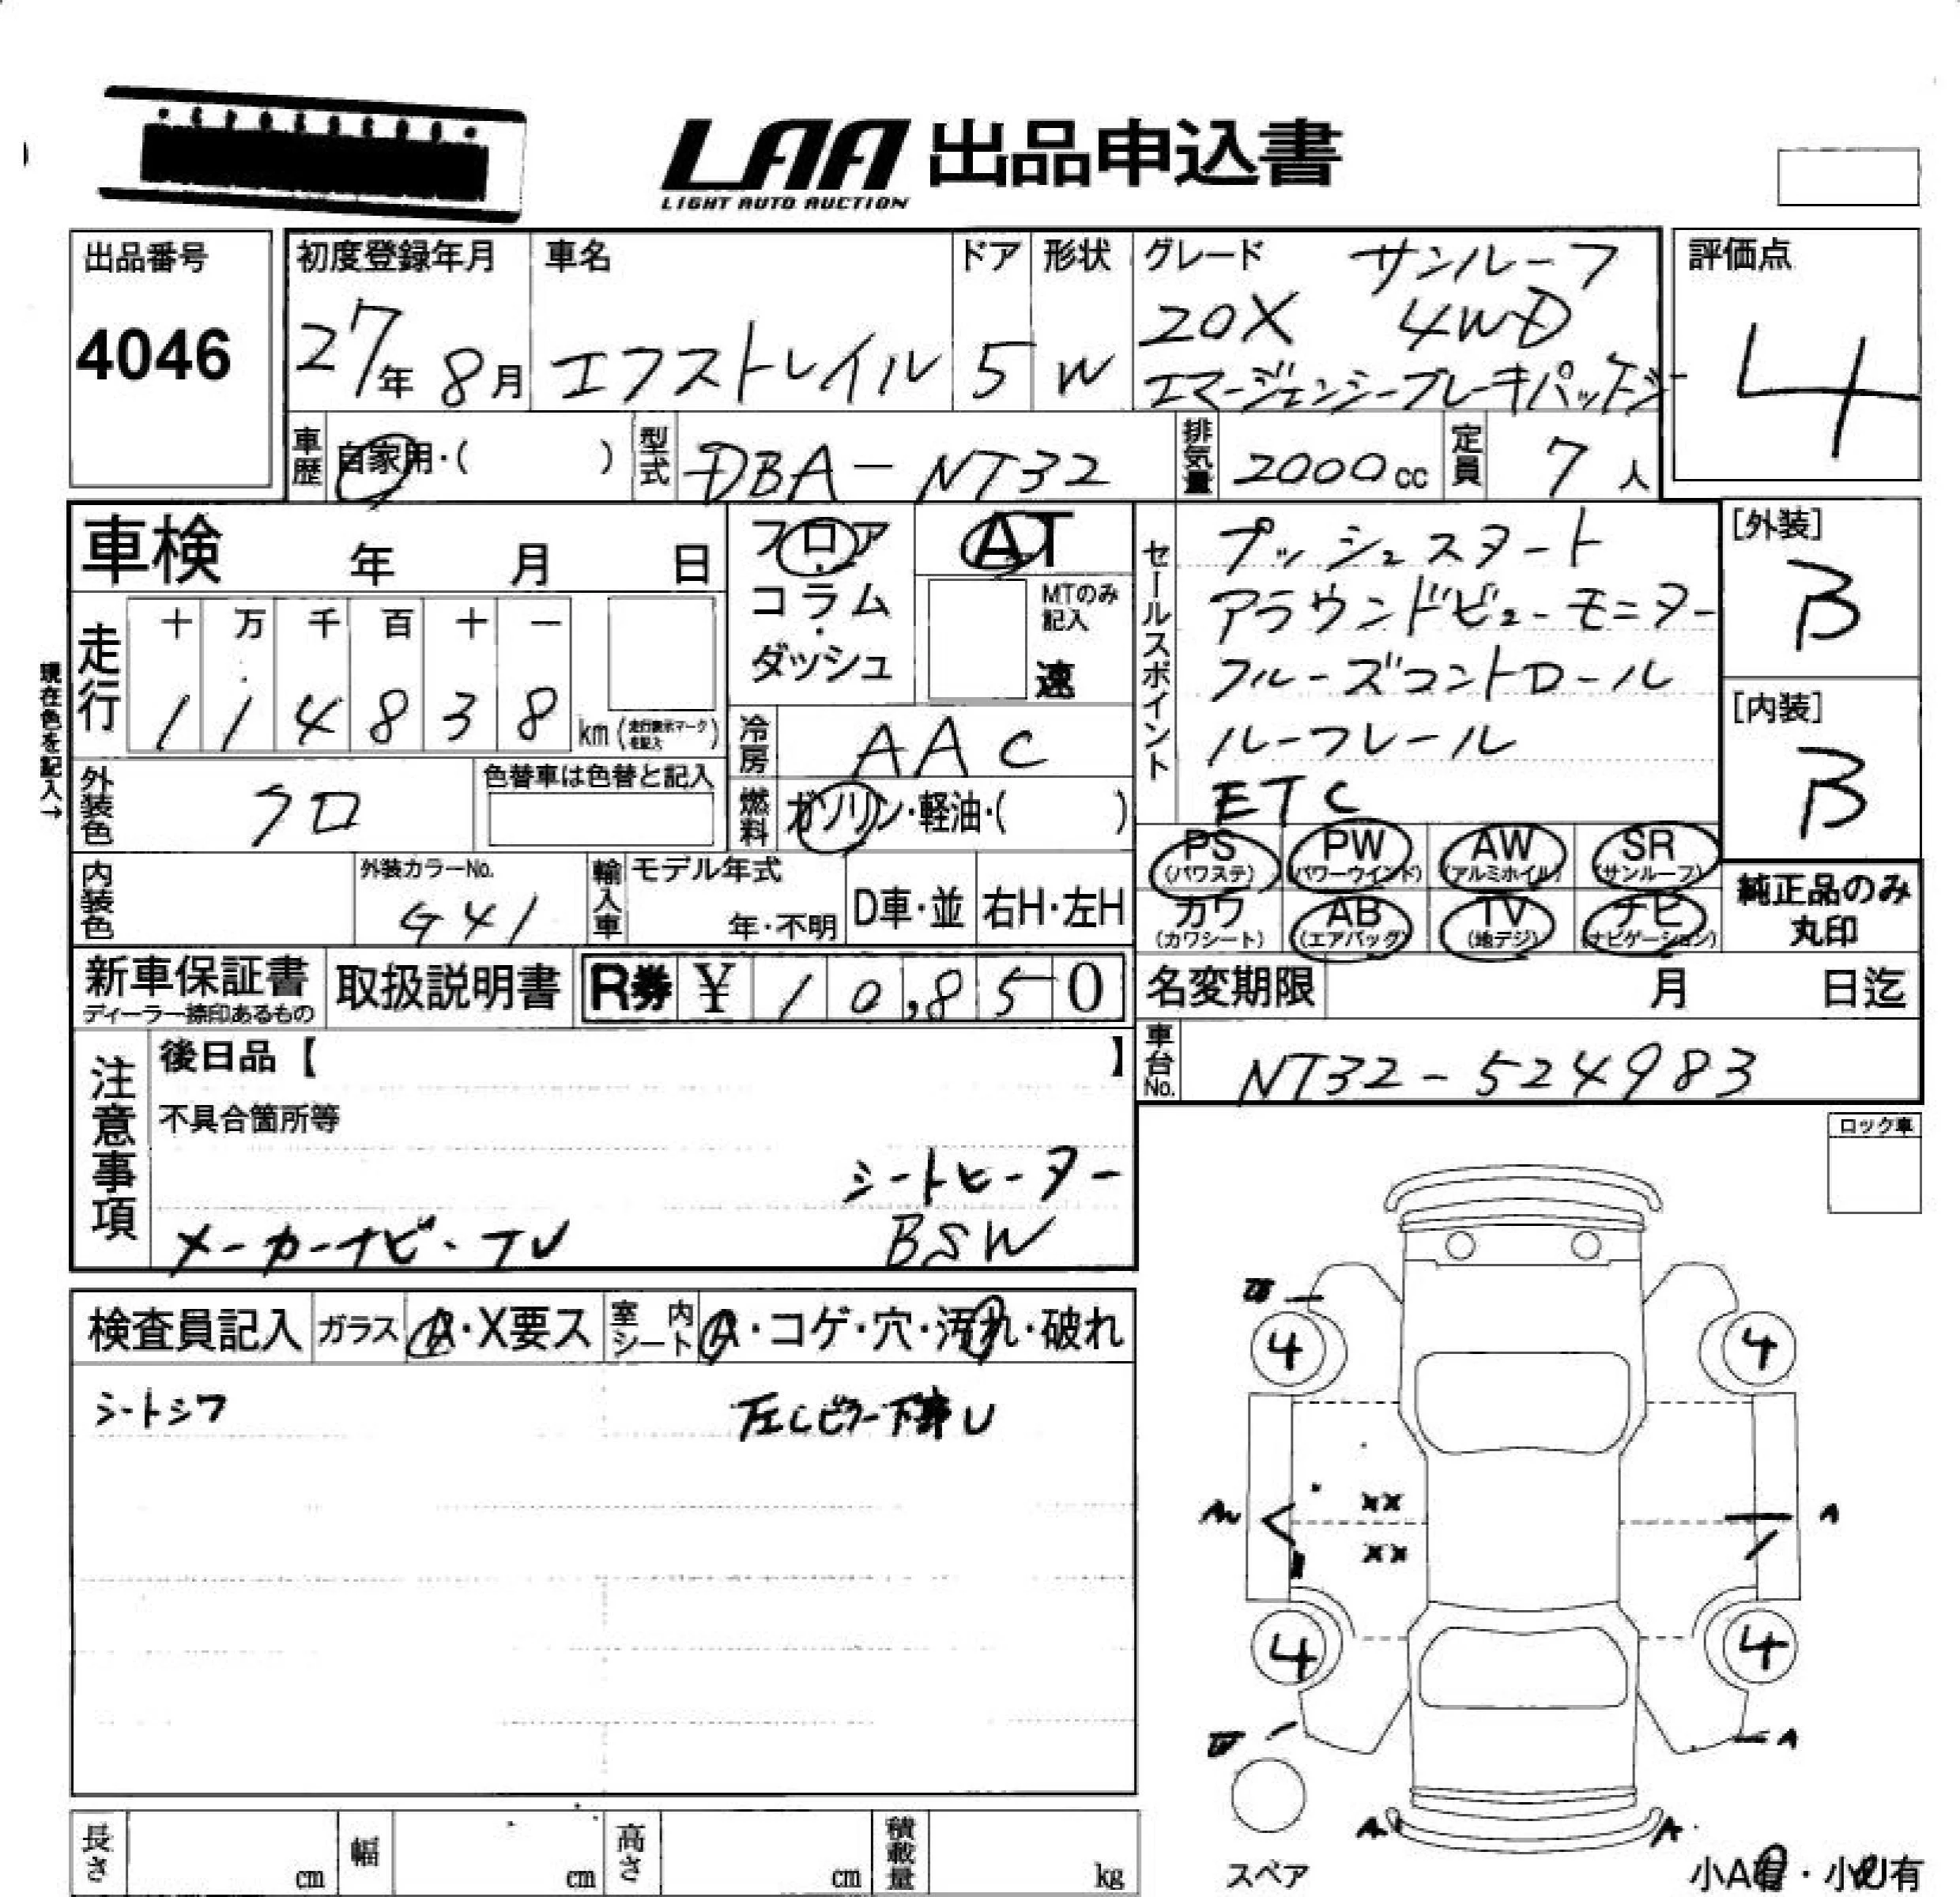 LAA 出品申込書
LIGHT AUTO AUCTION
出品番号
4046
初度登録年月
27年 8月
車名
エクストレイル
ドア
5
形状
W
グレード
サンルーフ
20X 4WD
エマージェンシーブレーキパッケージ
評価点
4
車歴 自家用・( )
型式 DBA-NT32
排気量 2000cc
定員 7人
車検 年 月 日
フロア・コラム・ダッシュ
AT
MTのみ記入
速
セールスポイント
プッシュスタート
アラウンドビューモニター
クルーズコントロール
ルーフレール
ETC
[外装]
B
[内装]
B
現在色を記入→
走行
十 万 千 百 十 一
1 1 4 8 3 8 km (走行表示マークを記入)
冷房 AAC
外装色 クロ
色替車は色替と記入
燃料 ガソリン・軽油・( )
PS (パワステ) PW (パワーウインド) AW (アルミホイル) SR (サンルーフ)
カワ (カワシート) AB (エアバッグ) TV (地デジ) ナビ (ナビゲーション)
純正品のみ
丸印
内装色
外装カラーNo.
G41
輸入車 モデル年式
年・不明
D車・並 右H・左H
新車保証書
ディーラー捺印あるもの
取扱説明書
R券 ¥ 10,850
名変期限 月 日迄
車台No. NT32-524983
注意事項
後日品【 】
不具合箇所等
シートヒーター
メーカーナビ・TV BSW
ロック車
検査員記入 ガラス A・X要ス 室内シート A・コゲ・穴・汚れ・破れ
シートシワ 左Cピラー下 U
4 4
A
XX
XX
4 4
A
A A
スペア
小A有・小U有
長さ cm 幅 cm 高さ cm 積載量 kg